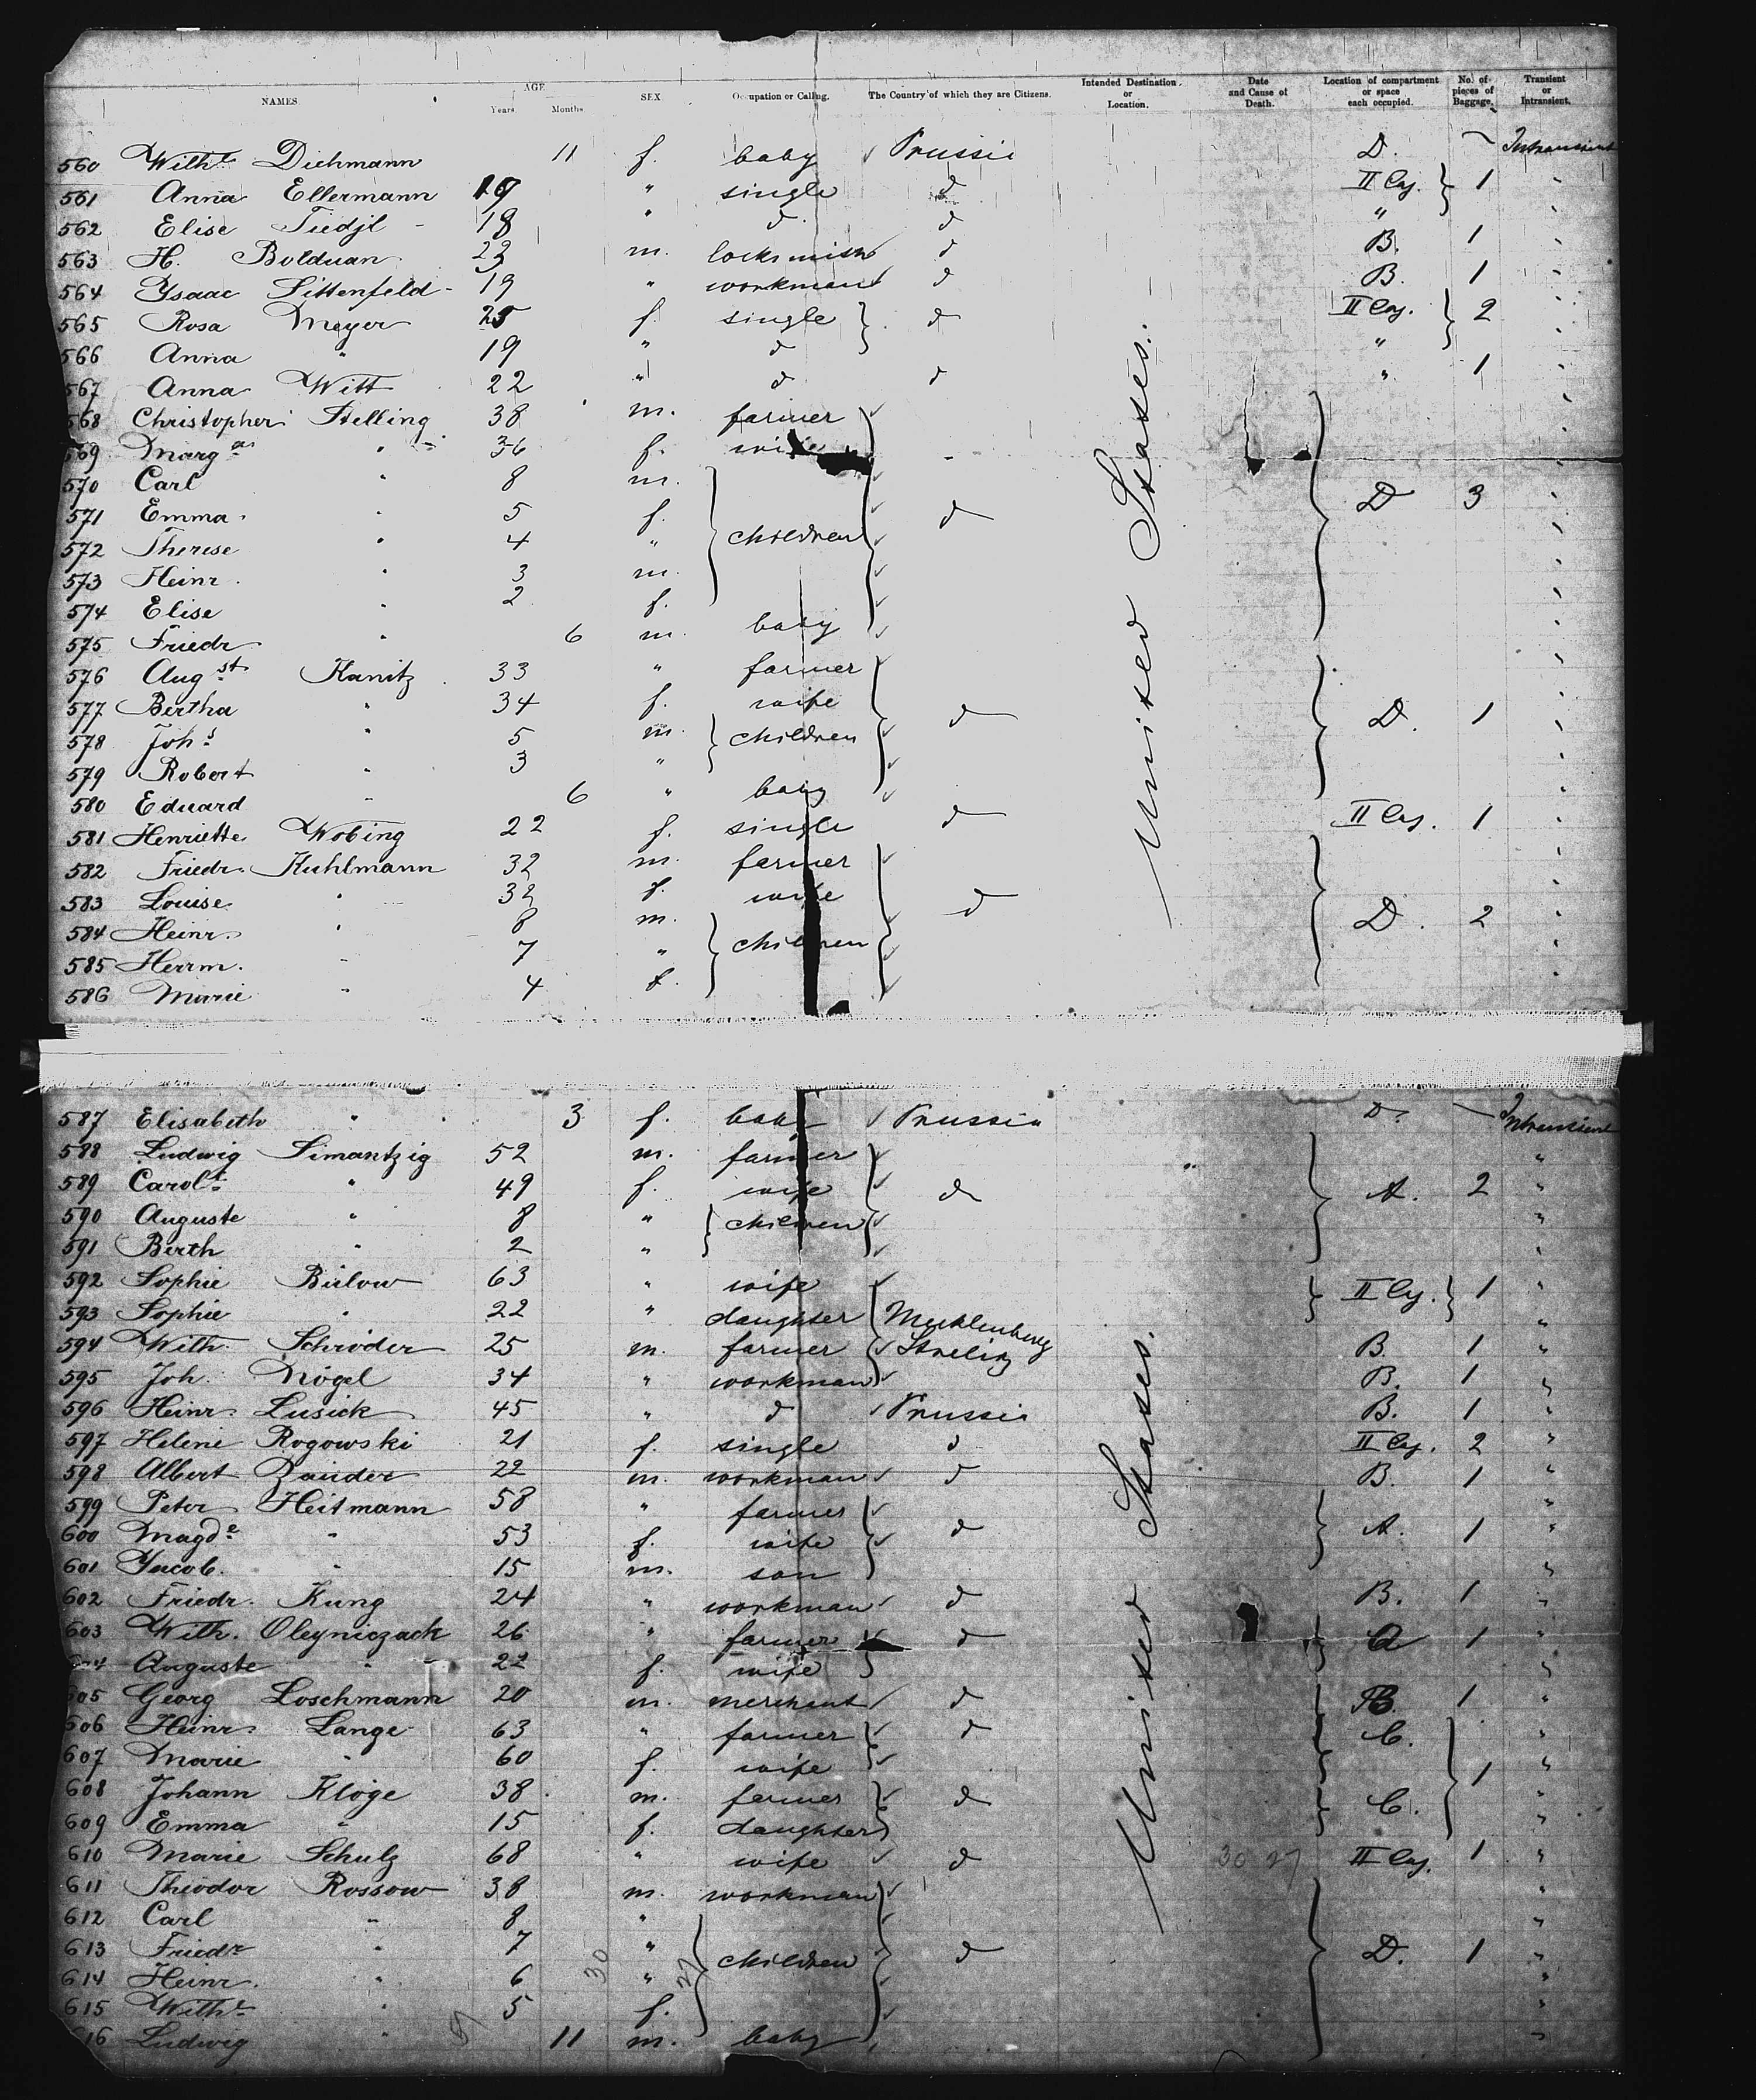 NAMES AGE Years Months. SEX Occupation or Calling. The Country of which they are Citizens. Intended Destination or Location. Date and Cause of Death. Location of compartment or space each occupied. No. of pieces of Baggage. Transient or Intransient.
560 Wilh.e Diehmann 11 f. baby ✓ Prussia D. — Intransient
561 Anna Ellermann 19 " single d II Caj. } 1 "
562 Elise Tiedjl - 18 " d. d " "
563 H. Bolduan 23 m. locksmith d B. 1 "
564 Ysaac Littenfeld - 19 " workman d B. 1 "
565 Rosa Meyer 25 f. single } d II Caj. } 2 "
566 Anna " 19 " d " "
567 Anna Witt 22 " d d " 1 "
568 Christopher Stelling 38 m. farmer ✓ "
569 Marg.a " 36 f. wife "
570 Carl " 8 m. ✓ D 3 "
571 Emma " 5 f. ✓ d "
572 Therese " 4 " children ✓ "
573 Heinr. " 3 m. ✓ "
574 Elise " 2 f. ✓ "
575 Friedr " 6 m. baby ✓ "
576 Aug.st Kanitz 33 " farmer ✓ "
577 Bertha " 34 f. wife ✓ d D. 1 "
578 Joh.s " 5 m. children ✓ "
579 Robert " 3 " ✓ "
580 Eduard " 6 " baby ✓ "
581 Henriette Wobing 22 f. single d II Caj. 1 "
582 Friedr. Kuhlmann 32 m. farmer ✓ "
583 Louise " 32 f. wife d "
584 Heinr. " 8 m. ✓ D. 2 "
585 Herrm. " 7 " children ✓ "
586 Marie " 4 f. ✓ "
United States.
587 Elisabeth " 3 f. baby ✓ Prussia D. — Intransient
588 Ludwig Simantzig 52 m. farmer ✓ "
589 Carol.e " 49 f. wife ✓ d A. 2 "
590 Auguste " 8 " children ✓ "
591 Berth " 2 " ✓ "
592 Sophie Bülow 63 " wife ✓ II Caj. } 1 "
593 Sophie " 22 " daughter Mecklenburg "
594 Wilh. Schröder 25 m. farmer ✓ Strelitz B. 1 "
595 Joh. Nögel 34 " workman ✓ B. 1 "
596 Heinr. Lusick 45 " d ✓ Prussia B. 1 "
597 Helene Rogowski 21 f. single d II Caj. 2 "
598 Albert Zander 22 m. workman ✓ d B. 1 "
599 Peter Heitmann 58 " farmer ✓ "
600 Magd.e " 53 f. wife ✓ d A. 1 "
601 Jacob. " 15 m. son "
602 Friedr. Kung 24 " workman ✓ d B. 1 "
603 Wilh. Oleyniczack 26 " farmer ✓ d A 1 "
604 Auguste " 22 f. wife "
605 Georg Loschmann 20 m. merchant ✓ d B. 1 "
606 Heinr. Lange 63 " farmer ✓ d C. "
607 Marie " 60 f. wife ✓ 1 "
608 Johann Kloge 38 m. farmer ✓ d C. "
609 Emma " 15 f. daughter "
610 Marie Schulz 68 " wife ✓ d 30 27 II Caj. 1 "
611 Theodor Rossow 38 m. workman ✓ "
612 Carl " 8 " ✓ "
613 Friedr " 7 " children ✓ d D. 1 "
614 Heinr. " 6 30 " 27 ✓ "
615 Wilh.e " 5 f. ✓ "
616 Ludwig " 57 11 m. baby "
United States.